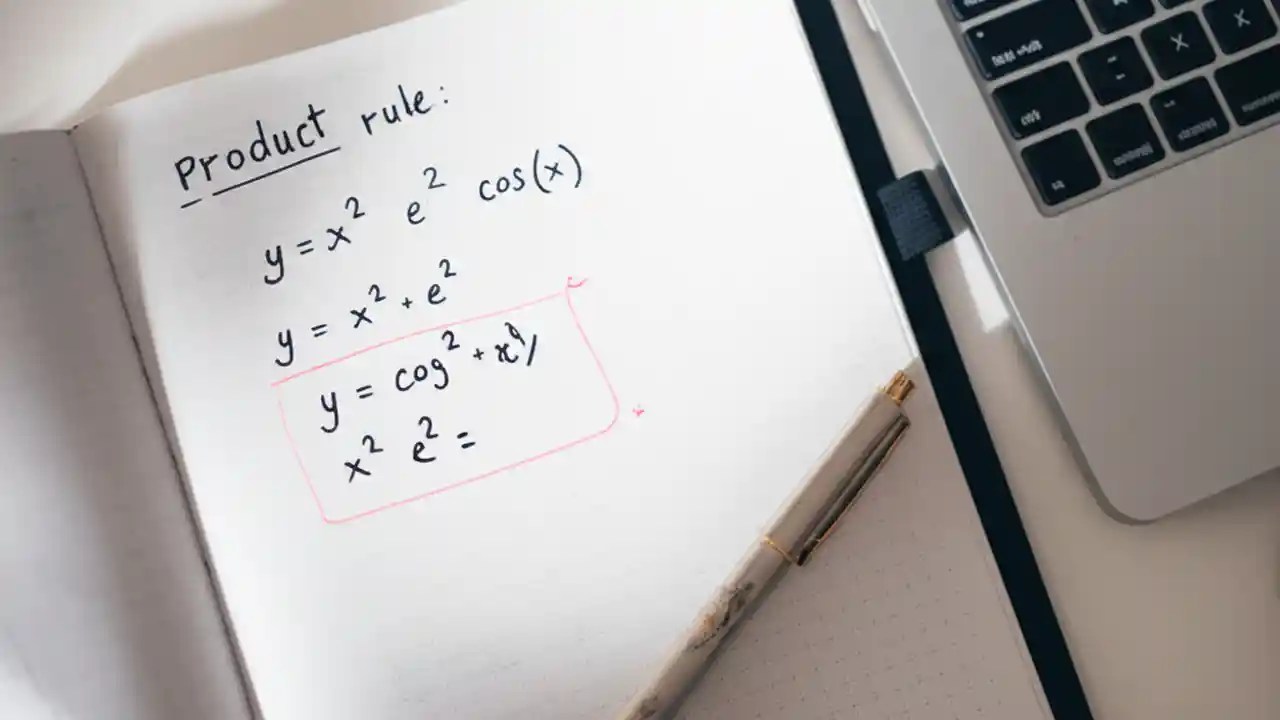 Product rule:
y = x² e² cos(x)
y = x² + e²
y = cog² + x
x² e² =